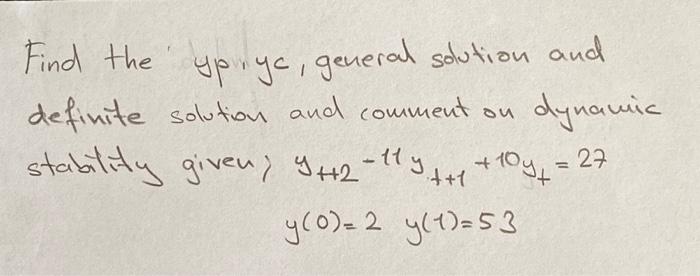 Find the yp, yc, general solution and
definite solution and comment on dynamic
stability given; y_{t+2} - 11y_{t+1} + 10y_t = 27
y(0)=2 y(1)=53